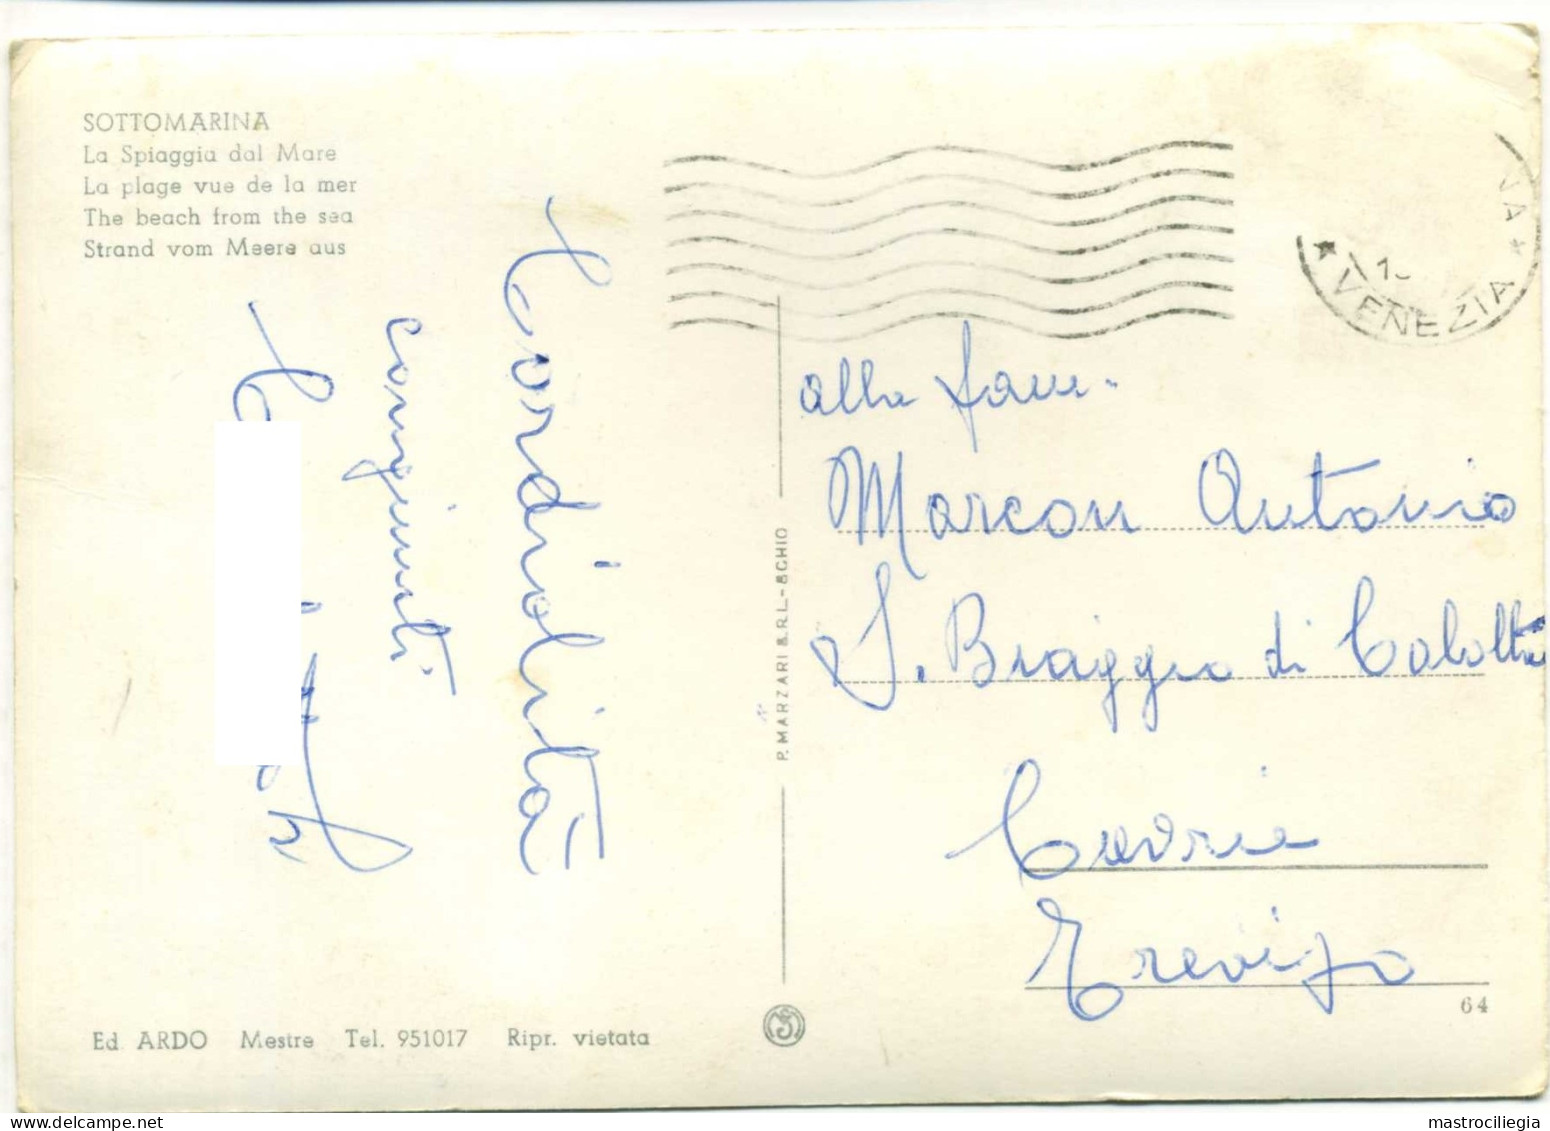 SOTTOMARINA
La Spiaggia dal Mare
La plage vue de la mer
The beach from the sea
Strand vom Meere aus
Cordialità
congiunti
VENEZIA
alla fam.
Marcon Antonio
S. Biaggio di Calalta
Cavrie
Treviso
P. MARZARI S.R.L. - SCHIO
64
Ed. ARDO Mestre Tel. 951017 Ripr. vietata
mastrociliegia